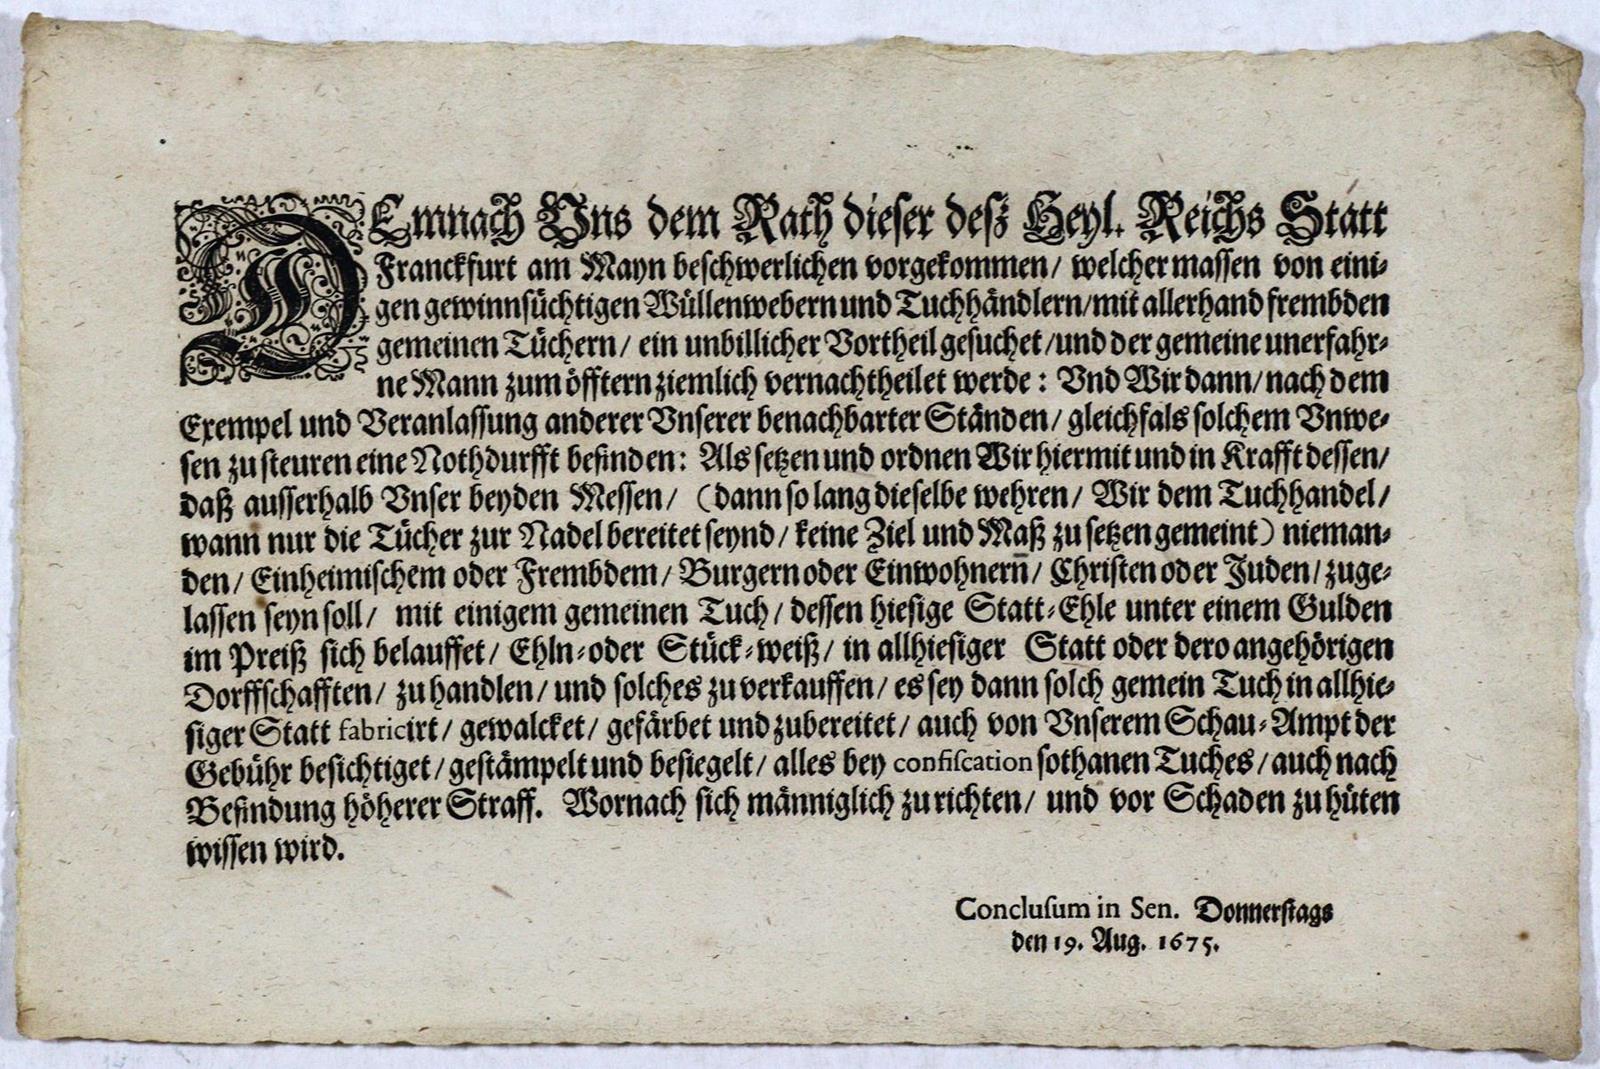 DEmnach Uns dem Rath dieser deß Heyl. Reichs Statt
Franckfurt am Mayn beschwerlichen vorgekommen/ welcher massen von eini-
gen gewinnsüchtigen Wüllenwebern und Tuchhändlern/ mit allerhand frembden
gemeinen Tüchern/ ein unbillicher Vortheil gesuchet/ und der gemeine unerfahr-
ne Mann zum öfftern ziemlich vernachtheilet werde: Vnd Wir dann/ nach dem
Exempel und Veranlassung anderer Vnserer benachbarter Ständen/ gleichfals solchem Vnwe-
sen zu steuren eine Nothdurfft befinden: Als setzen und ordnen Wir hiermit und in Krafft dessen/
daß ausserhalb Vnser beyden Messen/ (dann so lang dieselbe wehren/ Wir dem Tuchhandel/
wann nur die Tücher zur Nadel bereitet seynd/ keine Ziel und Maß zu setzen gemeint) nieman-
den/ Einheimischem oder Frembdem/ Burgern oder Einwohnern̄/ Christen oder Juden/ zuge-
lassen seyn soll/ mit einigem gemeinen Tuch/ dessen hiesige Statt-Ehle unter einem Gulden
im Preiß sich belauffet/ Ehln-oder Stück-weiß/ in allhiesiger Statt oder dero angehörigen
Dorffschafften/ zu handlen/ und solches zu verkauffen/ es sey dann solch gemein Tuch in allhie-
siger Statt fabricirt/ gewalcket/ gefärbet und zubereitet/ auch von Vnserem Schau-Ampt der
Gebühr besichtiget/ gestämpelt und besiegelt/ alles bey confiſcation sothanen Tuches/ auch nach
Befindung höherer Straff. Wornach sich männiglich zu richten/ und vor Schaden zu hüten
wissen wird.
Concluſum in Sen. Donnerstags
den 19. Aug. 1675.